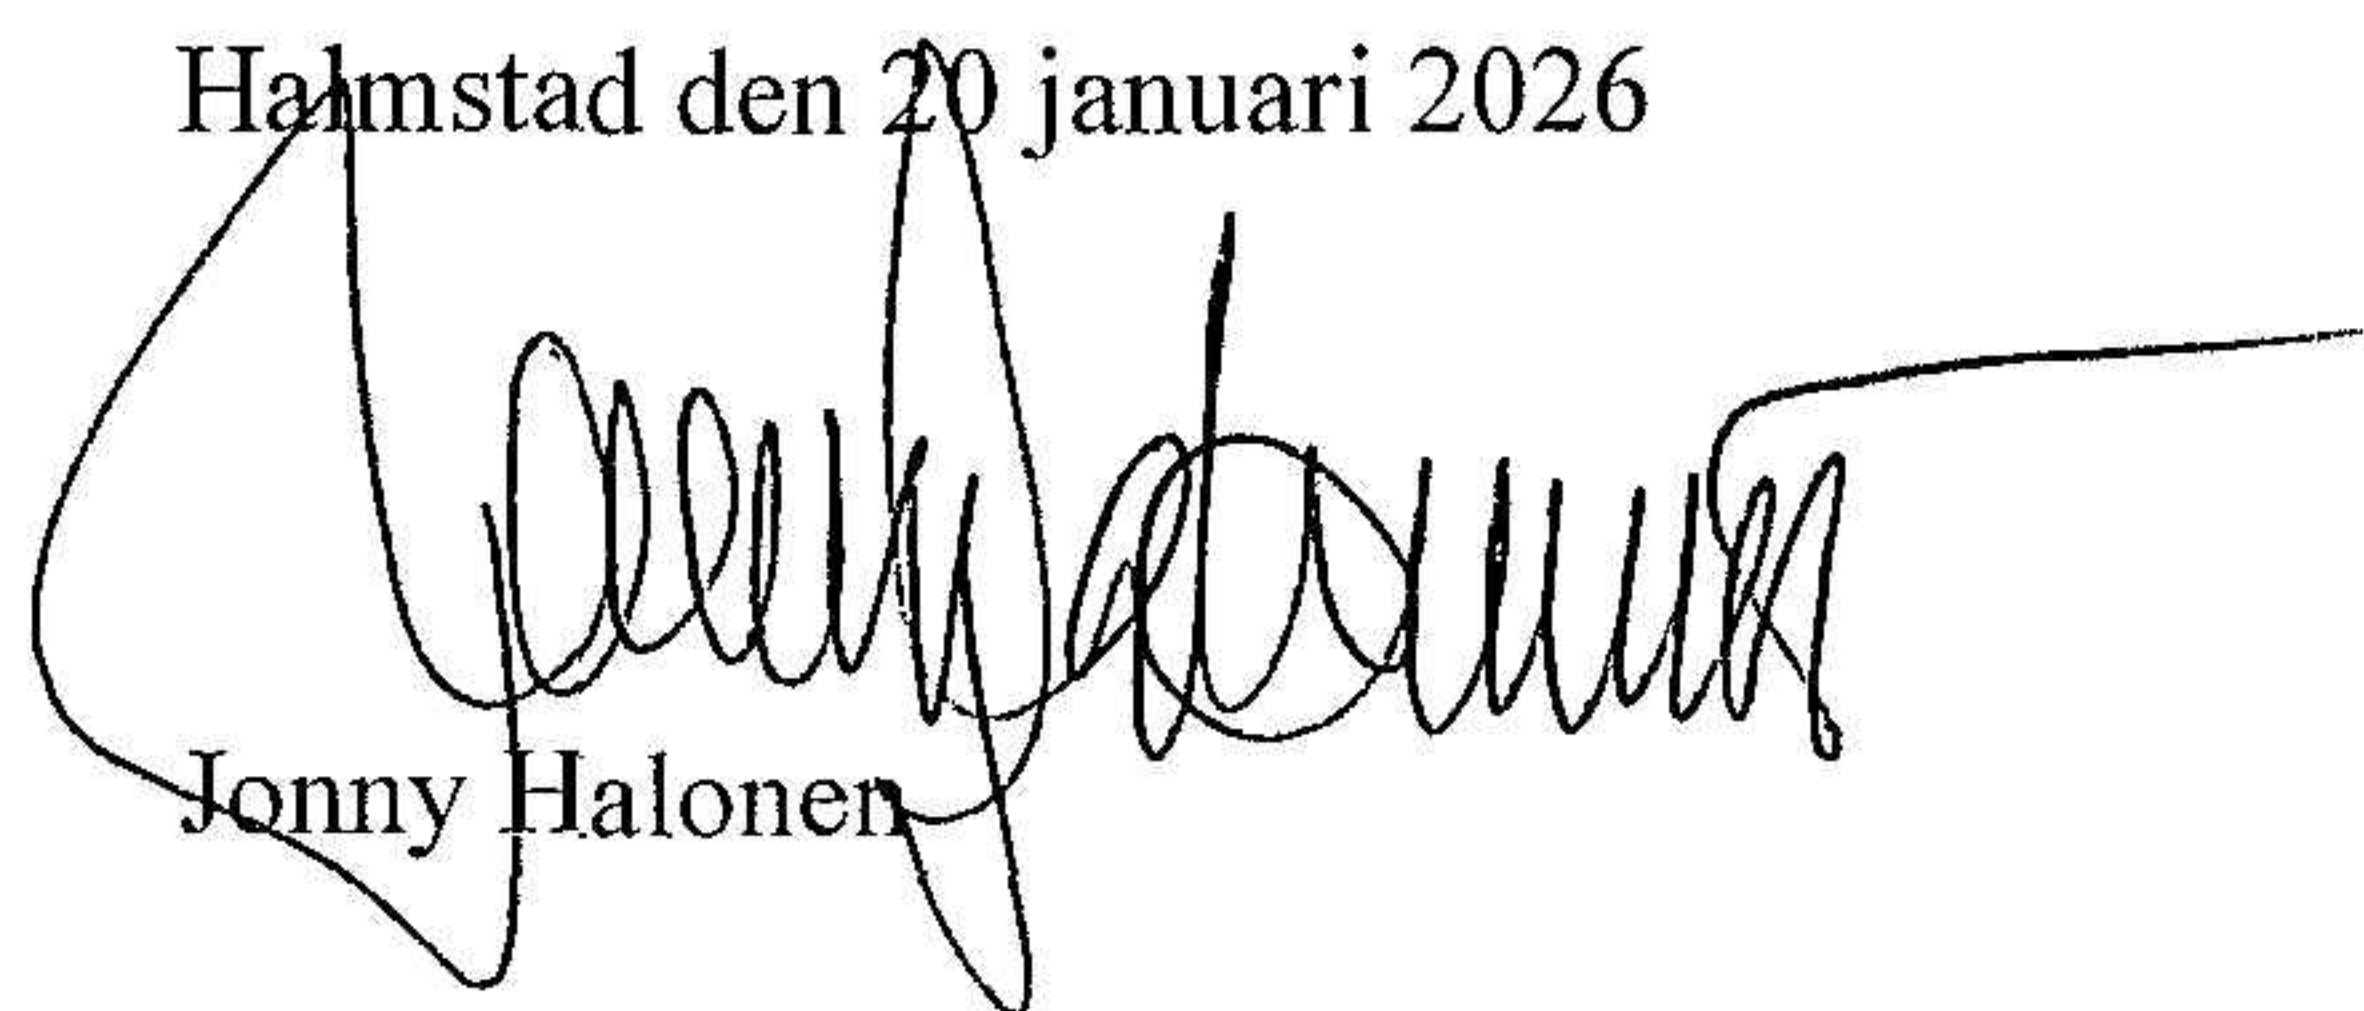 Halmstad den 20 januari 2026
Jonny Halonen